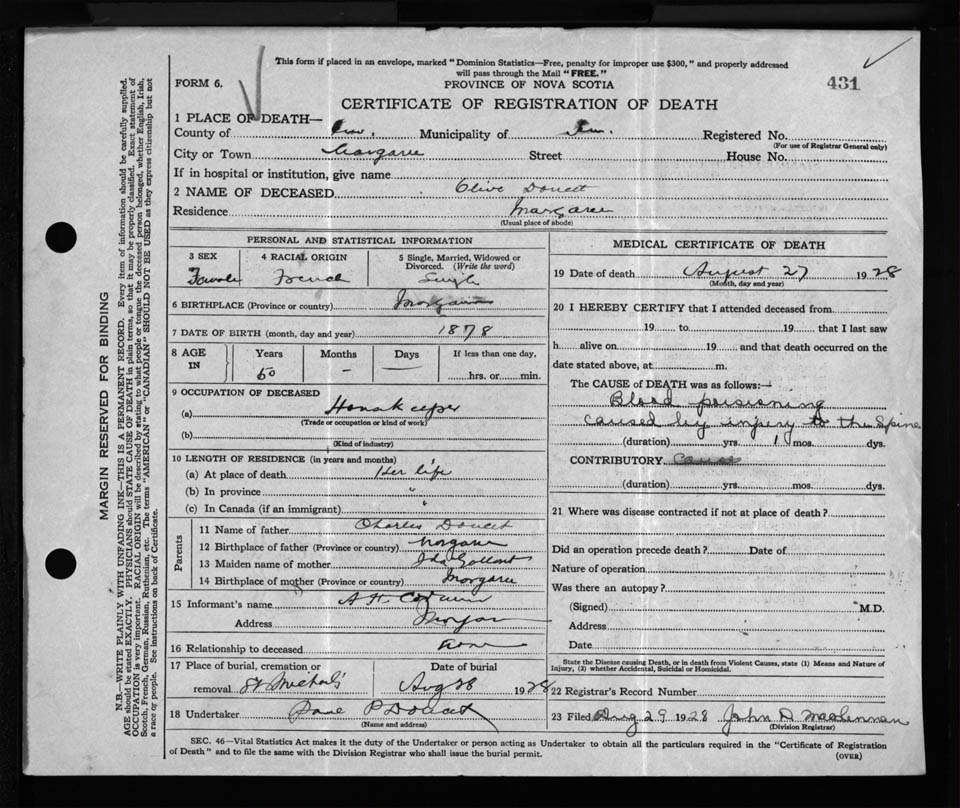 This form if placed in an envelope, marked "Dominion Statistics—Free, penalty for improper use $300," and properly addressed
will pass through the Mail "FREE."
FORM 6.
PROVINCE OF NOVA SCOTIA
431
CERTIFICATE OF REGISTRATION OF DEATH
1 PLACE OF DEATH—
County of Inv. Municipality of Inv. Registered No.
(For use of Registrar General only)
City or Town Margaree Street House No.
If in hospital or institution, give name
2 NAME OF DECEASED Olive Doucet
Residence Margaree
(Usual place of abode)
PERSONAL AND STATISTICAL INFORMATION
3 SEX 4 RACIAL ORIGIN 5 Single, Married, Widowed or
Divorced. (Write the word)
Female French Single
6 BIRTHPLACE (Province or country) Margaree
7 DATE OF BIRTH (month, day and year) 1878
8 AGE IN Years Months Days If less than one day,
50 — — hrs. or min.
9 OCCUPATION OF DECEASED
(a) House Keeper
(Trade or occupation or kind of work)
(b)
(Kind of industry)
10 LENGTH OF RESIDENCE (in years and months)
(a) At place of death Her life
(b) In province "
(c) In Canada (if an immigrant) "
Parents
11 Name of father Charles Doucet
12 Birthplace of father (Province or country) Margaree
13 Maiden name of mother Ida Gallant
14 Birthplace of mother (Province or country) Margaree
15 Informant's name A H
Address Margaree
16 Relationship to deceased none
17 Place of burial, cremation or Date of burial
removal St Michals Aug 28 1928
18 Undertaker P Doucet
(Name and address)
MEDICAL CERTIFICATE OF DEATH
19 Date of death August 27 1928
(Month, day and year)
20 I HEREBY CERTIFY that I attended deceased from
19 to 19 that I last saw
h alive on 19 and that death occurred on the
date stated above, at m.
The CAUSE of DEATH was as follows:—
Blood poisioning
caused by injury to the Spine
(duration) yrs. 1 mos. dys.
CONTRIBUTORY cause
(duration) yrs. mos. dys.
21 Where was disease contracted if not at place of death?
Did an operation precede death? Date of
Nature of operation
Was there an autopsy?
(Signed) M.D.
Address
Date
State the Disease causing Death, or in death from Violent Causes, state (1) Means and Nature of
Injury, (2) whether Accidental, Suicidal or Homicidal.
22 Registrar's Record Number
23 Filed Aug 29 1928 John D Maclennan
(Division Registrar)
SEC. 46—Vital Statistics Act makes it the duty of the Undertaker or person acting as Undertaker to obtain all the particulars required in the "Certificate of Registration
of Death" and to file the same with the Division Registrar who shall issue the burial permit.
(OVER)
MARGIN RESERVED FOR BINDING
N.B.—WRITE PLAINLY WITH UNFADING INK—THIS IS A PERMANENT RECORD. Every item of information should be carefully supplied.
AGE should be stated EXACTLY. PHYSICIANS should STATE CAUSE OF DEATH in plain terms, so that it may be properly classified. Exact statement of
OCCUPATION is very important. RACIAL ORIGIN will be described by stating to what people or tongue the deceased person belonged, whether English, Irish,
Scotch, French, German, Russian, Ruthenian, etc. The terms "AMERICAN" or "CANADIAN" SHOULD NOT BE USED as they express citizenship but not
a race or people. See instructions on back of Certificate.